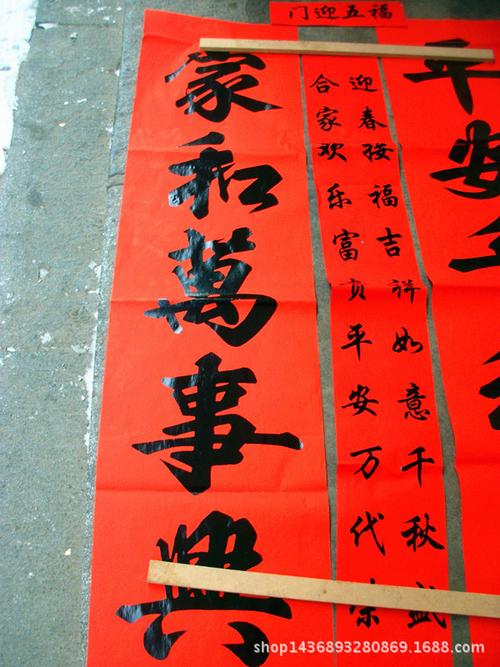 门迎五福
平安
迎春接福吉祥如意千秋盛
合家欢乐富贵平安万代荣
家和萬事興
shop1436893280869.1688.com